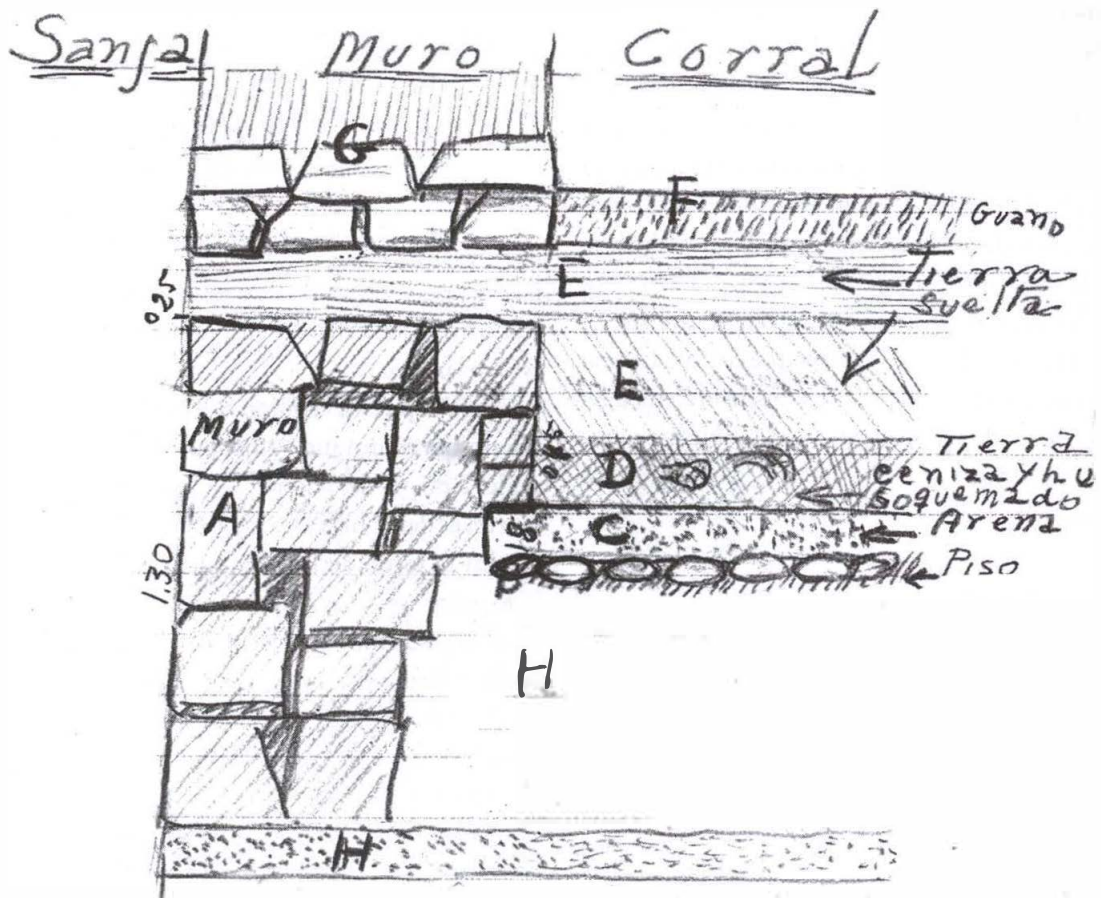 Sanja Muro Corral
G
F
Guano
E
Tierra
suelta
025
E
Muro
D
Tierra
ceniza y hu
soquemado
A
18
C
Arena
B
Piso
1.30
H
H